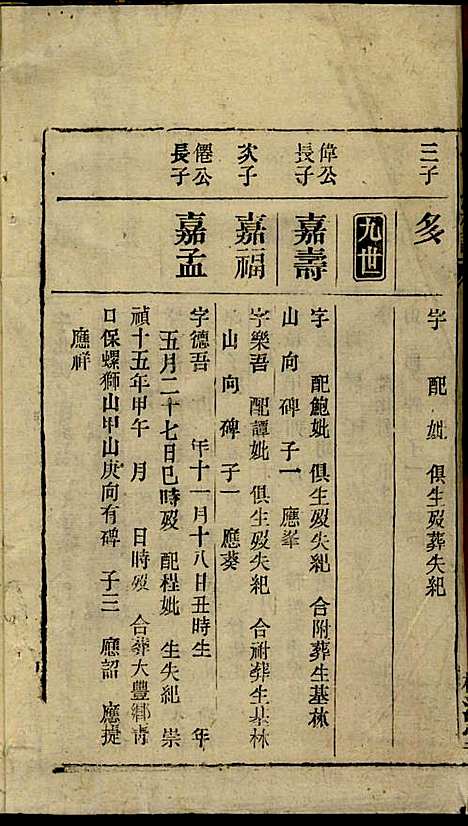 三子
多
字　配　妣　俱生歿葬失紀
九世
偉公
長子
嘉壽
字　配鮑妣　俱生歿失紀　合附葬生基林
山　向碑　子一　應峯
次子
嘉福
字樂吾　配譚妣　俱生歿失紀　合祔葬生基林
山　向碑　子一　應葵
僊公
長子
嘉孟
字德吾　年十一月十八日丑時生　年
五月二十七日巳時歿　配程妣　生失紀　崇
禎十五年甲午　月　日時歿　合葬大豐鄉靑
口保螺獅山甲山庚向有碑　子三　應詔　應捷
應祥